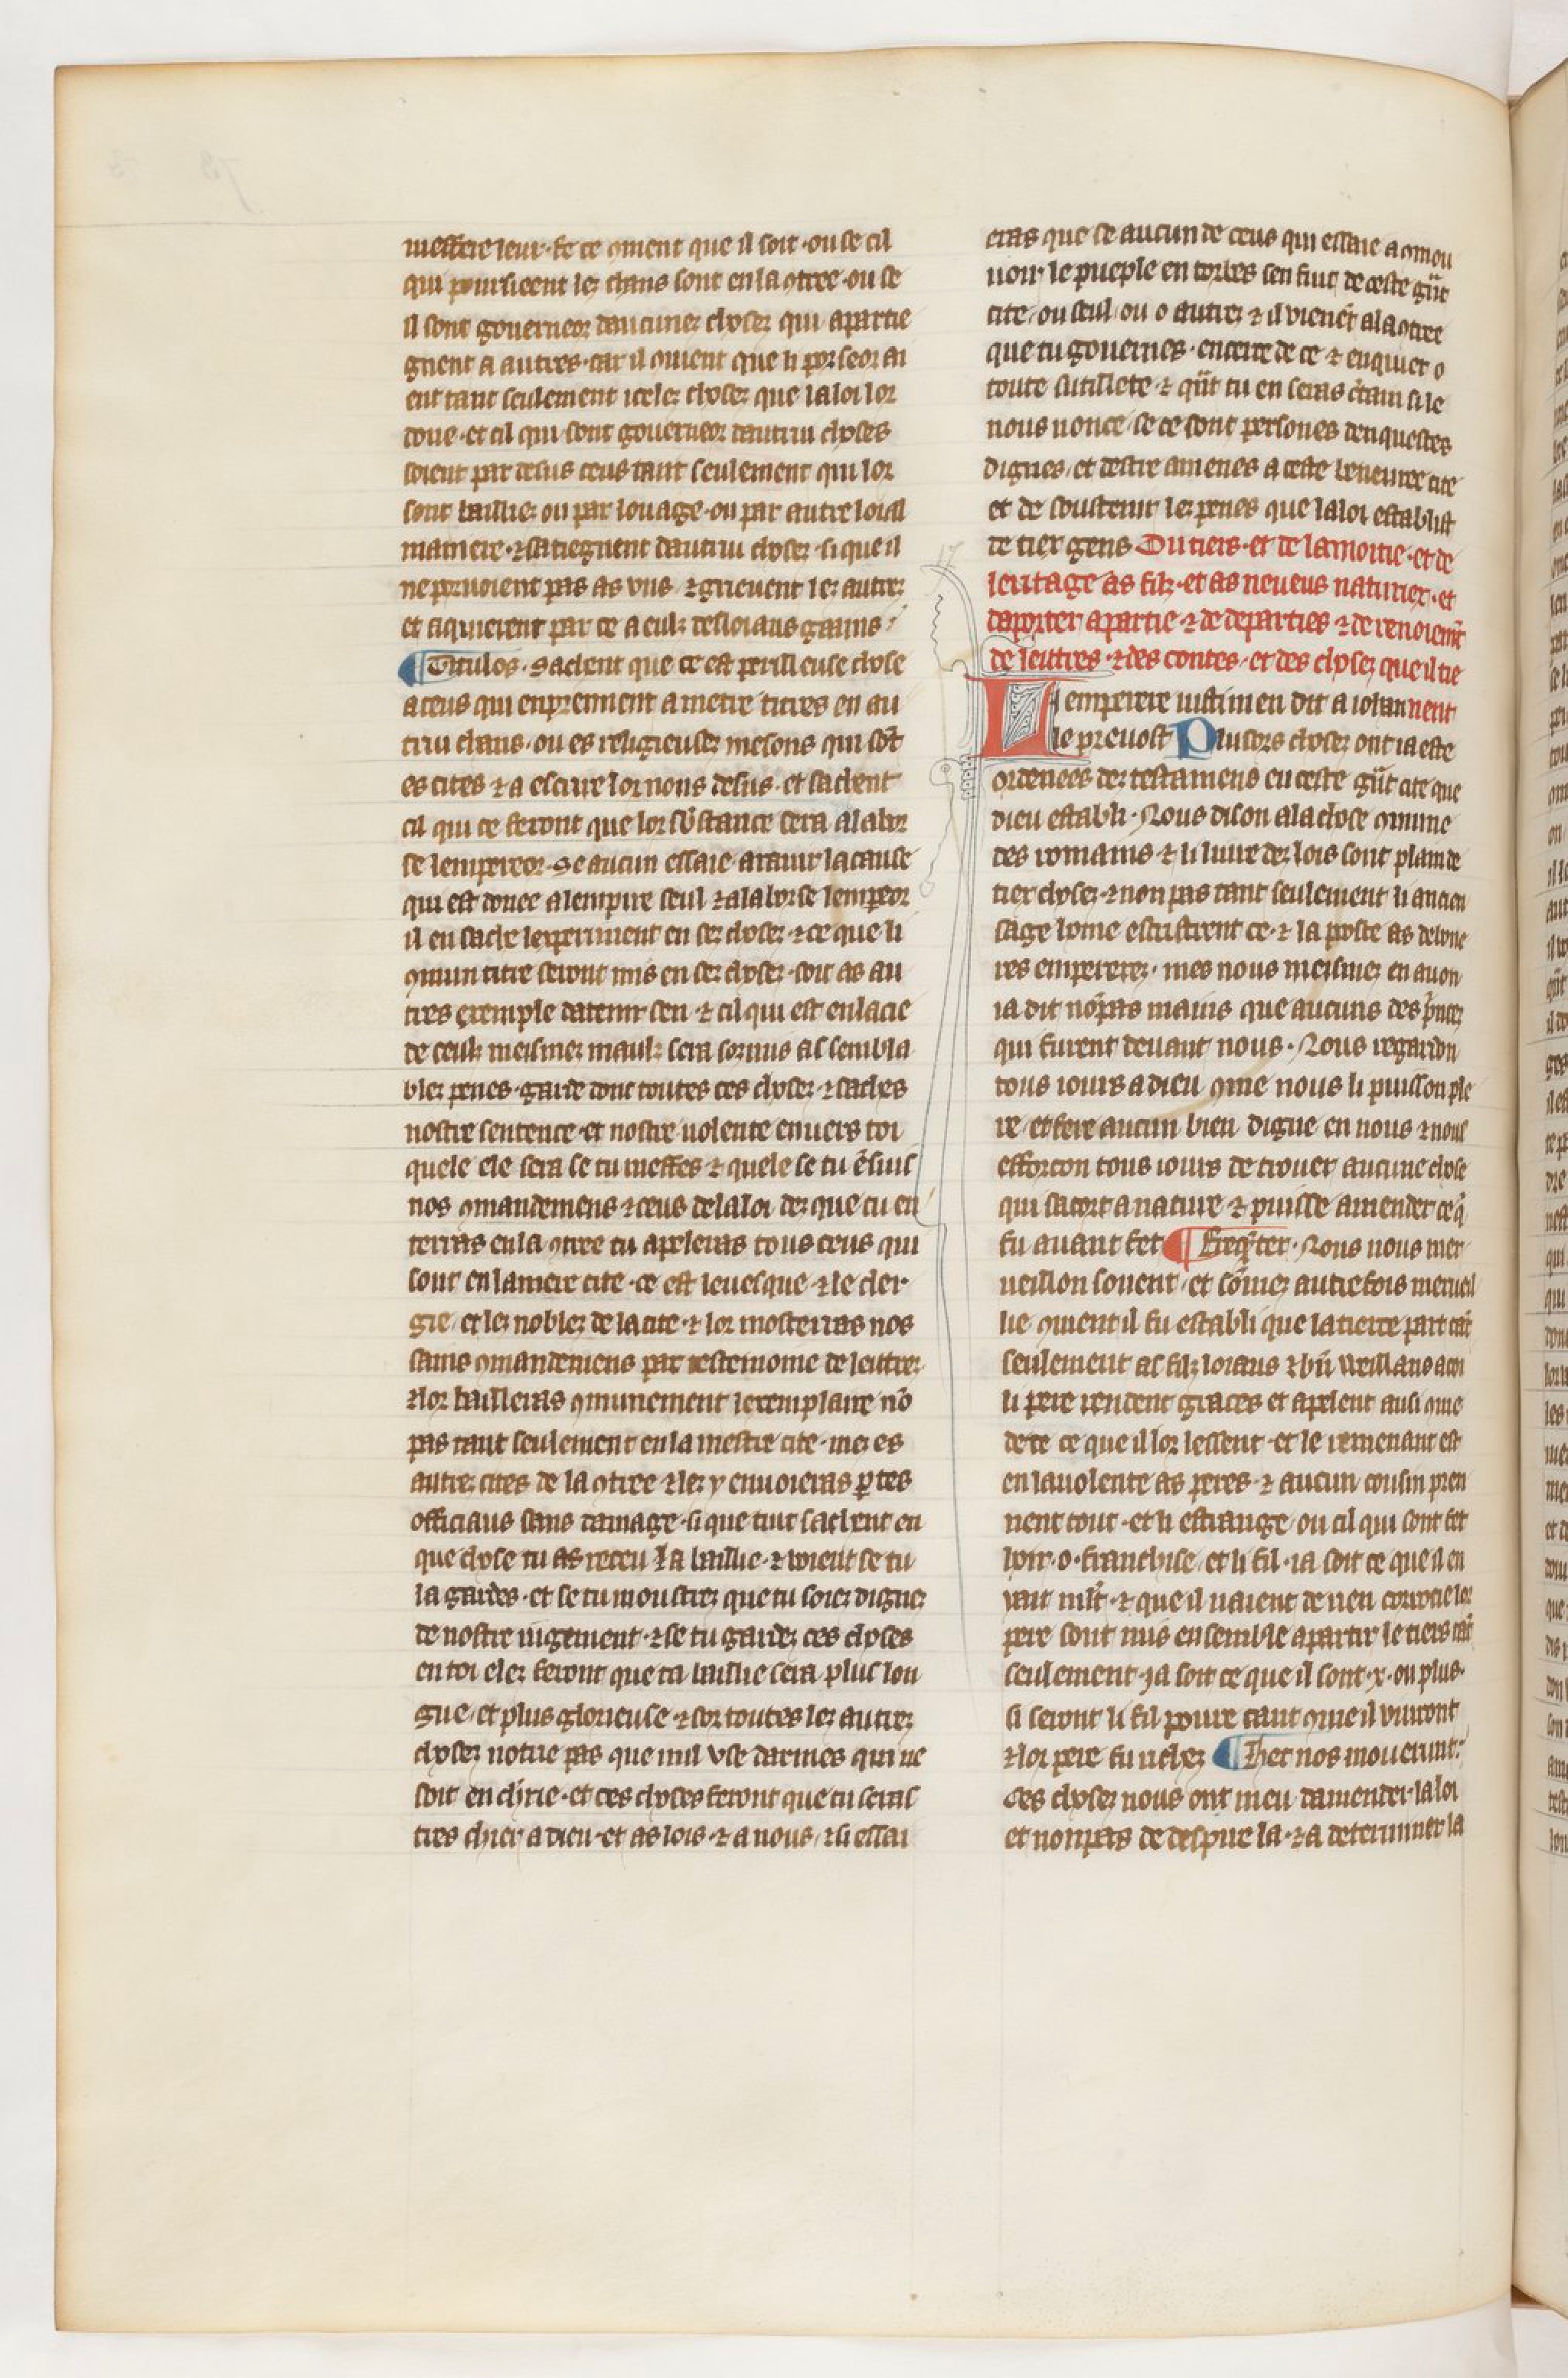 meffere leur. Et ce 9ment que il soit. ou se cil
qui poursieent lez chans sont en la 9tree. ou se
il sont gouerneoz daucunez chosez qui apartie
gnent a autres. car il 9uient que li porseor ai
ent tant seulement icelez chosez que la loi lor
done. et cil qui sont gouerneoz dautrui choses
soient par desus ceus tant seulement qui lor
sont bailliez ou par louage. ou par autre loial
maniere. ⁊ satiegnent dautrui chosez. si que il
ne pozuoient pas as uns ⁊ grieuent lez autrez
et aquierent par ce a eulz desloiaus gaains
¶ Titulos. Sachent que ce est perilleuse chose
a ceus qui enprennent a metre titres en au
trui chans. ou es religieusez mesons qui sōt
es cites ⁊ a escrire lor nons desus. et sachent
cil qui ce feront que lor sustance sera a la bor
se lempereor. Se aucun essaie a rauir la cause
qui est donee a lempire seul ⁊ a la borse lempeor
il en sache lexperiment en sez chosez. ⁊ ce que li
9mun titre seront mis en sez chosez. soit as au
tres exemple datenir sen ⁊ cil qui est enlacie
de ceulz meismez maulz sera sormis as sembla
blez penes. garde donc toutes ces chosez ⁊ saches
nostre sentence. et nostre uolente enuers toi
quele ele sera se tu meffes ⁊ quele se tu ensuis
nos 9mandemens ⁊ ceus de la loi. dez que tu en
terras en la 9tree tu apeleras tous ceus qui
sont en la mere cite. ce est leuesque ⁊ le cler
gie. et lez noblez de la cite. ⁊ lor mosterras nos
sains 9mandemens par testemoine de leittrez
⁊ lor bailleras 9munement lexemplaire nō
pas tant seulement en la mestre cite. mez es
autrez cites de la 9tree ⁊ lez y enuoieras p tes
officiaus sans damage. si que tuit sachent en
que chose tu as receu la baillie. ⁊ uoient se tu
la gardes. et se tu moustrez que tu soiez dignez
de nostre iugement. ⁊ se tu gardez ces choses
en toi elez feront que ta baillie sera plus lon
gue. et plus glorieuse. ⁊ sor toutes lez autrez
chosez notrie pas que nul use darmes qui ne
soit en chrie. et ces choses feront que tu seras
tres chier a dieu. et as lois. ⁊ a nous. ⁊ si essai
eras que se aucun de ceus qui essaie a 9mou
uoir le pueple en torbes sen fuit de ceste gnt
cite. ou seul. ou o autrez ⁊ il vienent a la 9tree
que tu gouernes. encerce de ce ⁊ enquier o
toute sutillete. ⁊ qnt tu en seras ctain si le
nous nonce. se ce sont persones denquestes
dignes. et destre amenes a ceste beneuree cite
et de soustenir lez penes que la loi establist
de tiex gens Du tiers. et de la moitie. et de
leritage as filz. et as neueus naturiex. et
daporter a partie ⁊ de departies ⁊ de renoiemt
de leittres. ⁊ des contes. et des chosez que il tie
Lemperere iustinien dit a iohan nent
le preuost Plusors chosez ont ia este
ordenees dez testamens en ceste gnt cite que
dieu establi. Nous dison a la chose 9mune
des romains ⁊ li liure dez lois sont plain de
tiex chosez. ⁊ non pas tant seulement li ancien
sage home escristrent ce. ⁊ la poste as
res empererez. mes nous meismez en auon
ia dit nōpas mains que aucuns des princes
qui furent deuant nous. Nous regardon
tous iours a dieu 9me nous li puisson ple
re. et fere aucun bien digne en nous ⁊ nous
efforcon tous iours de trouer aucune chose
qui sacort a nature ⁊ puisse amender ce q
fu auant fet ¶ Freqter. Nous nous mer
ueillon souent. et sōmez autrefois merueil
lie 9ment il fu establi que la tierce part tāt
seulement as filz loiaus ⁊ bn ueillans a
li pere rendent graces et apelent ausi 9me
dete ce que il lor lessent. et le remenant est
en la uolente as peres. ⁊ aucun cousin pren
nent tout. et li estrange. ou cil qui sont fet
hoir. o. franchise. et li fil. ia soit ce que il en
iait mlt. ⁊ que il naient de rien corrocie lor
pere sont mis ensemble a partir le tiers tāt
seulement. ja soit ce que il sont .x. ou plus.
si seront li fil poure tant 9me il uiuront
⁊ lor pere fu richez ¶ Hec nos mouerunt.
Ces chosez nous ont meu damender la loi
et non pas de despire la. ⁊ a determiner la